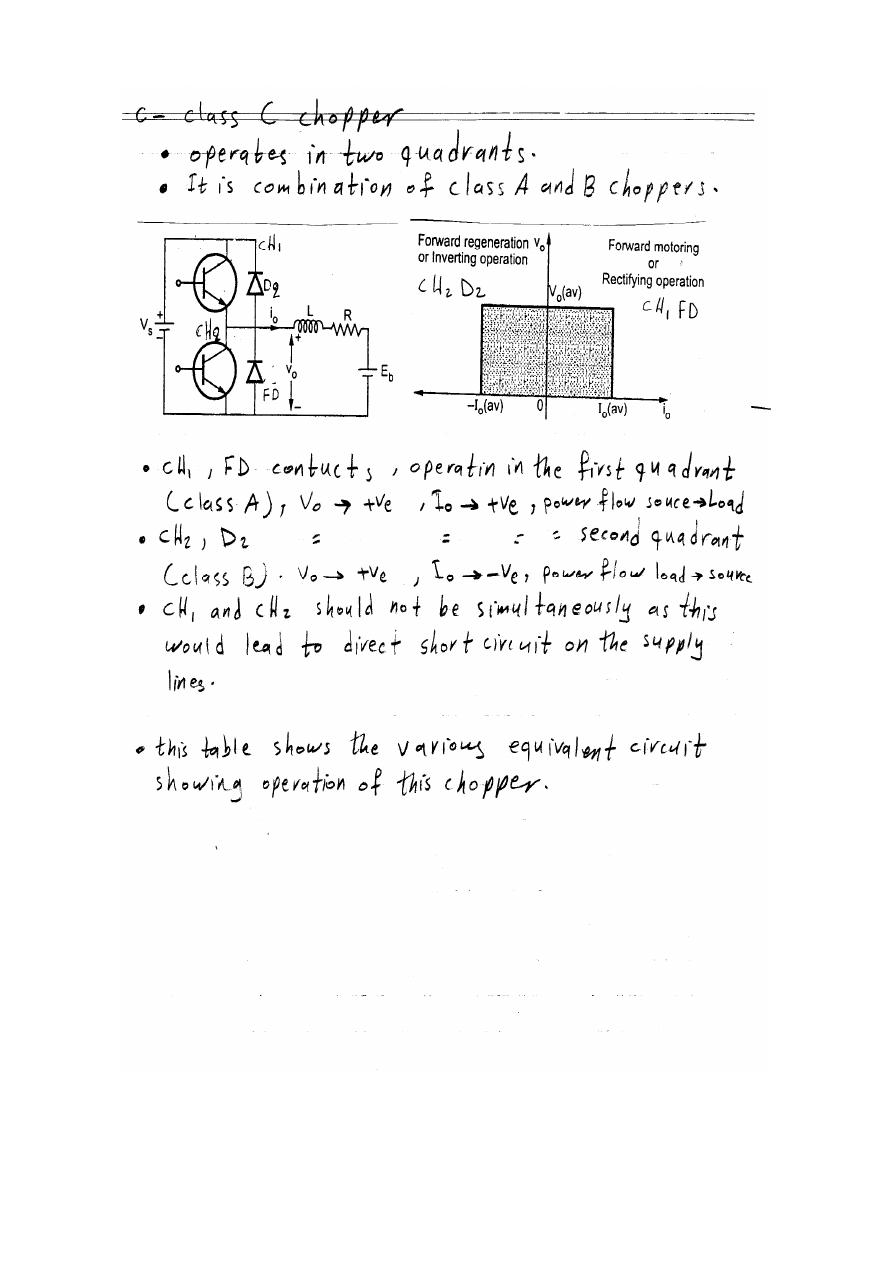 C- class C chopper
• operates in two quadrants.
• It is combination of class A and B choppers.
CH1
D2
i₀
L
R
Vs
+
-
CH2
+
v₀
-
FD
Eb
Forward regeneration
or Inverting operation
CH2 D2
V₀
Forward motoring
or
Rectifying operation
CH1 FD
V₀(av)
-I₀(av)
0
I₀(av)
i₀
• CH1 , FD contucts , operatin in the first quadrant
(class A), Vo → +Ve , Io → +Ve , power flow souce→Load
• CH2 , D2 = = = = second quadrant
(class B). Vo → +Ve , Io → -Ve, power flow load → source
• CH1 and CH2 should not be simultaneously as this
would lead to direct short circuit on the supply
lines.
• this table shows the various equivalent circuit
showing operation of this chopper.